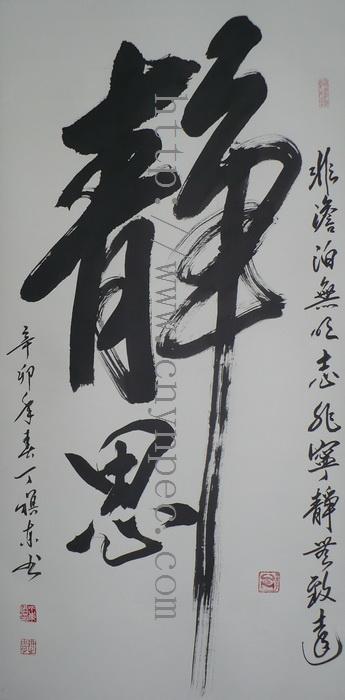 靜思
非澹泊無以明志非寧靜無致遠
辛卯年春丁慎東书
http://www.cnynpec.com